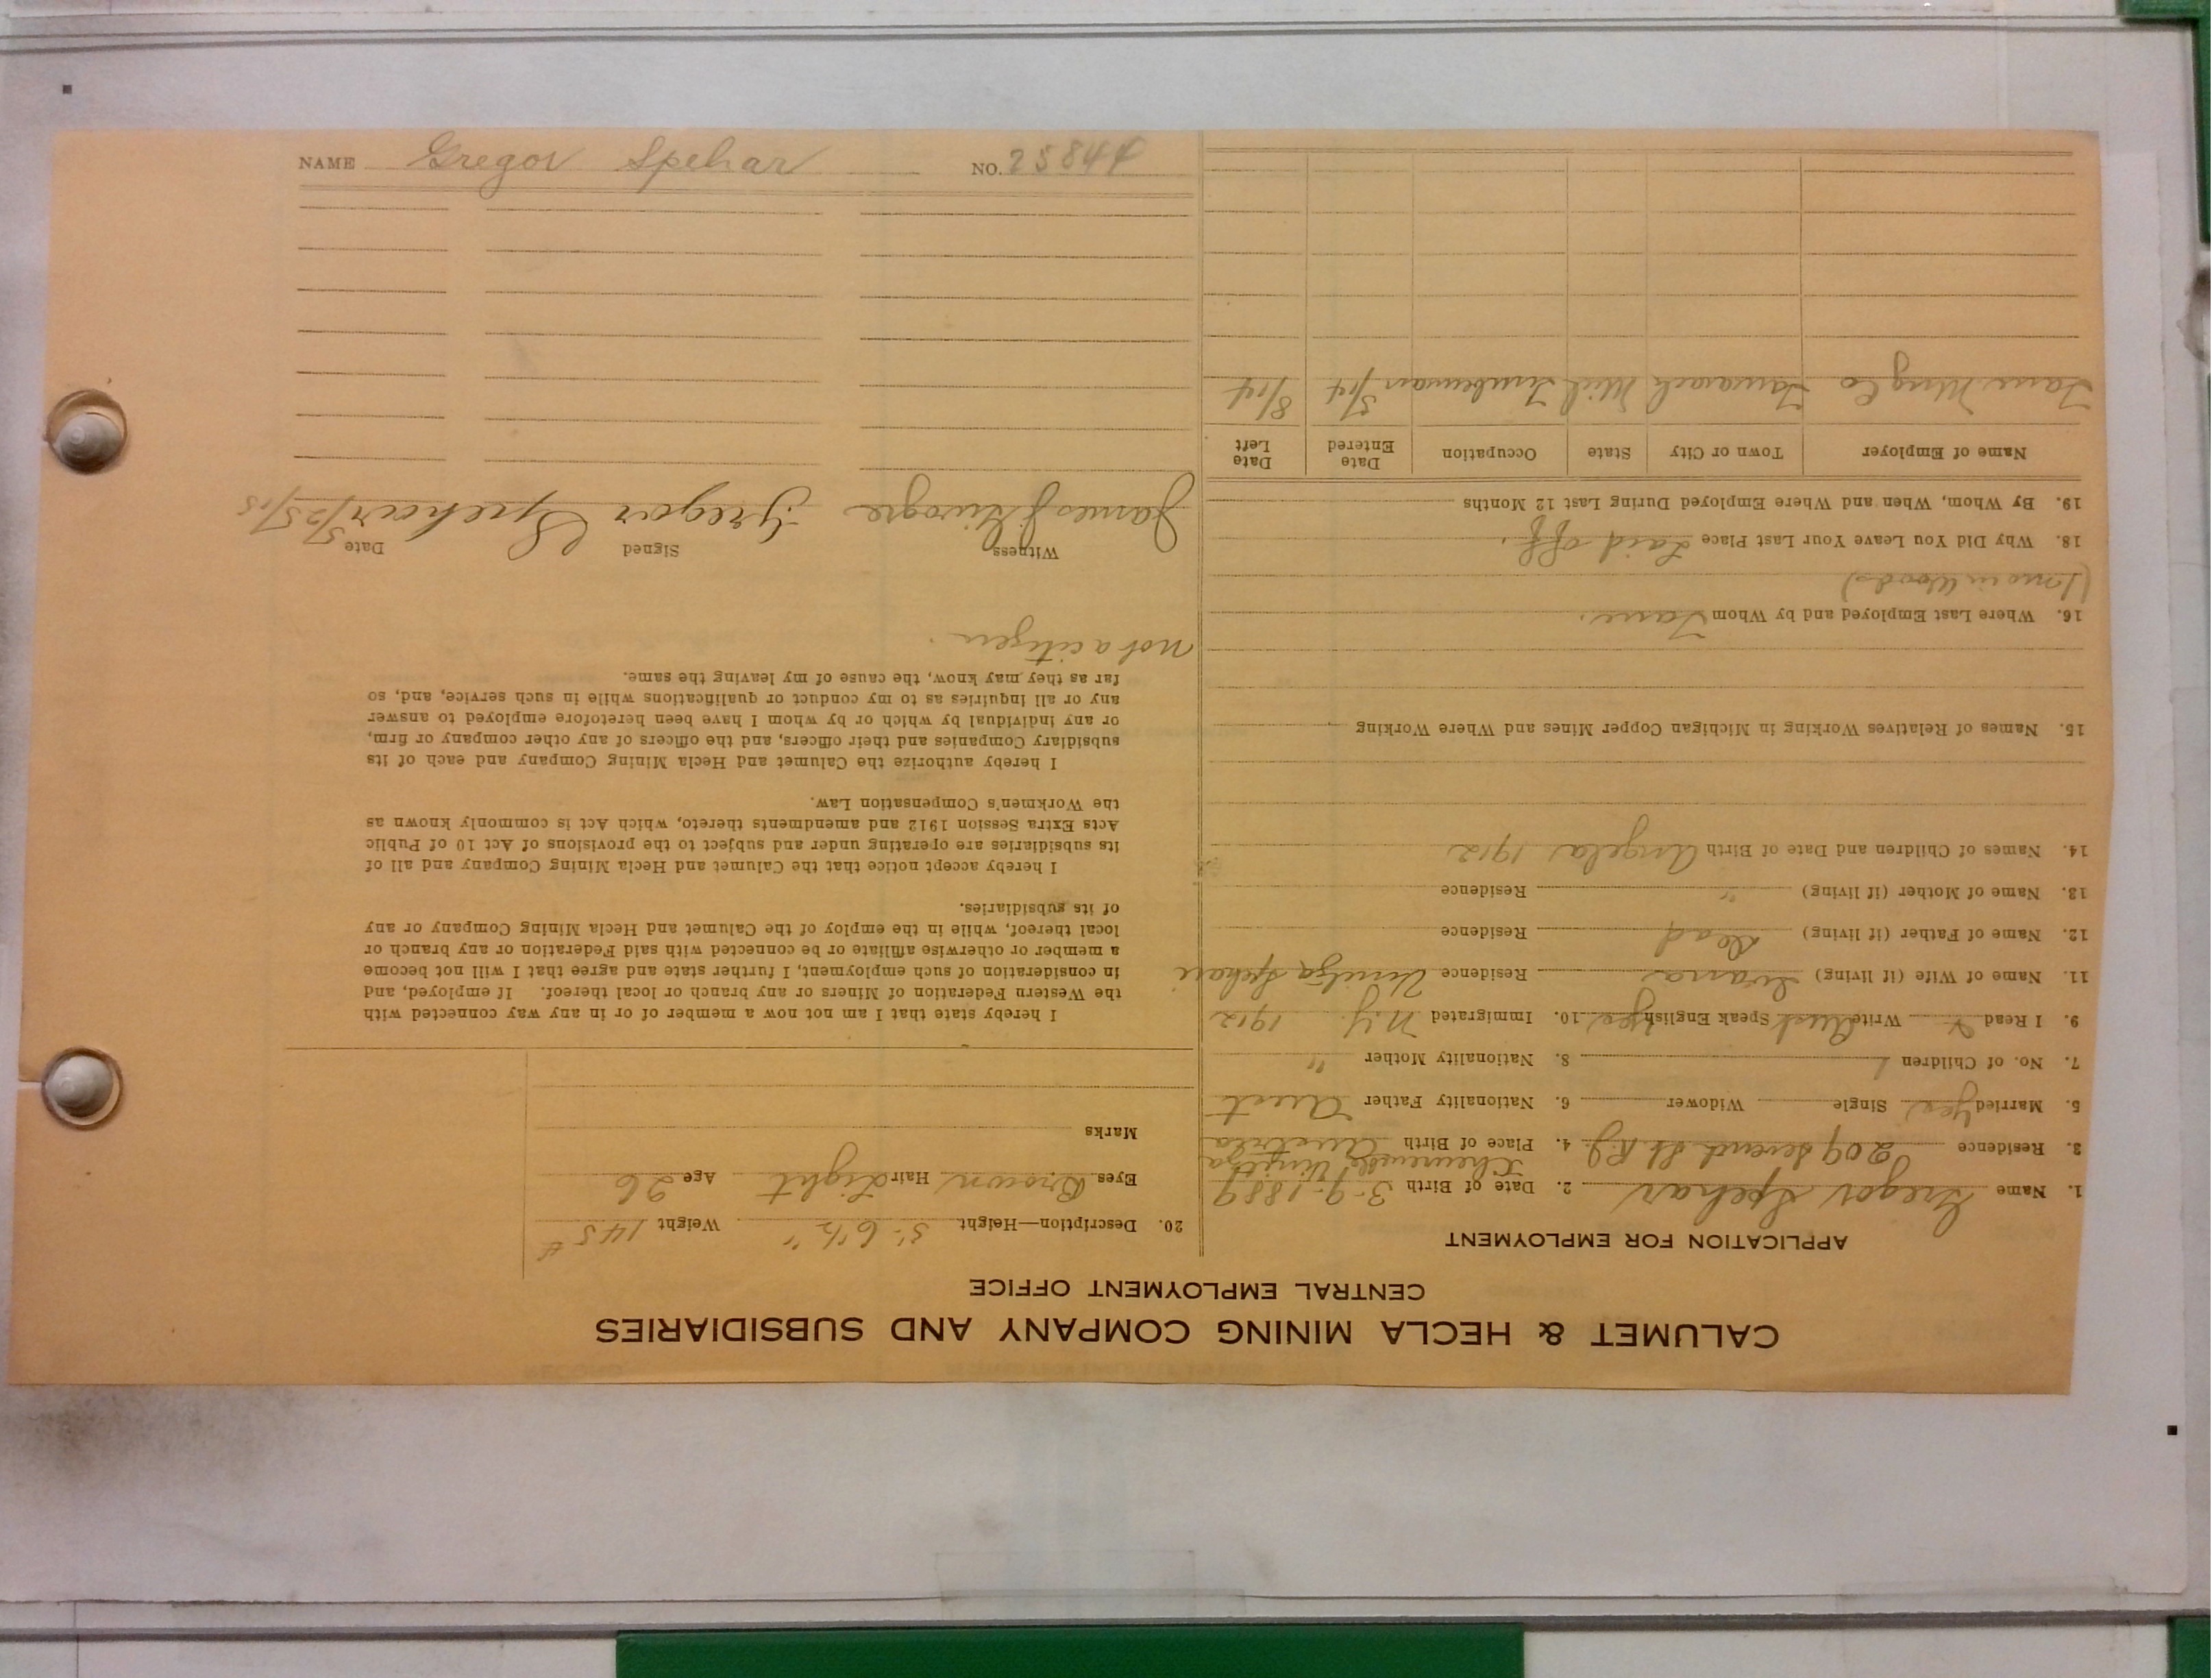 CALUMET & HECLA MINING COMPANY AND SUBSIDIARIES
CENTRAL EMPLOYMENT OFFICE
APPLICATION FOR EMPLOYMENT
1. Name Gregor Spehar 2. Date of Birth 3-9-1889
3. Residence 209 Seventh St 4. Place of Birth Austria
5. Married Yes Single Widower 6. Nationality Father Aust
7. No. of Children 1 8. Nationality Mother "
9. I Read Write Speak English Yes 10. Immigrated N.Y. 1912
11. Name of Wife (if living) Ivana Residence Spehari
12. Name of Father (if living) Dead Residence
13. Name of Mother (if living) " Residence
14. Names of Children and Date of Birth Angela 1912
15. Names of Relatives Working in Michigan Copper Mines and Where Working
16. Where Last Employed and by Whom Same.
(1 mo in Woods)
18. Why Did You Leave Your Last Place Laid off.
19. By Whom, When and Where Employed During Last 12 Months
Name of Employer Town or City State Occupation Date Entered Date Left
Tam Mng Co Tamarack Mich Timberman 5/14 8/14
20. Description—Height 5'-6 1/2" Weight 145#
Eyes Brown Hair Light Age 26
Marks
I hereby state that I am not now a member of or in any way connected with
the Western Federation of Miners or any branch or local thereof. If employed, and
in consideration of such employment, I further state and agree that I will not become
a member or otherwise affiliate or be connected with said Federation or any branch or
local thereof, while in the employ of the Calumet and Hecla Mining Company or any
of its subsidiaries.
I hereby accept notice that the Calumet and Hecla Mining Company and all of
its subsidiaries are operating under and subject to the provisions of Act 10 of Public
Acts Extra Session 1912 and amendments thereto, which Act is commonly known as
the Workmen's Compensation Law.
I hereby authorize the Calumet and Hecla Mining Company and each of its
subsidiary Companies and their officers, and the officers of any other company or firm,
or any individual by which or by whom I have been heretofore employed to answer
any or all inquiries as to my conduct or qualifications while in such service, and, so
far as they may know, the cause of my leaving the same.
Not a citizen.
Witness Signed Date
James J. Gregor Spehar 5/25/15
NAME Gregor Spehar NO. 25844